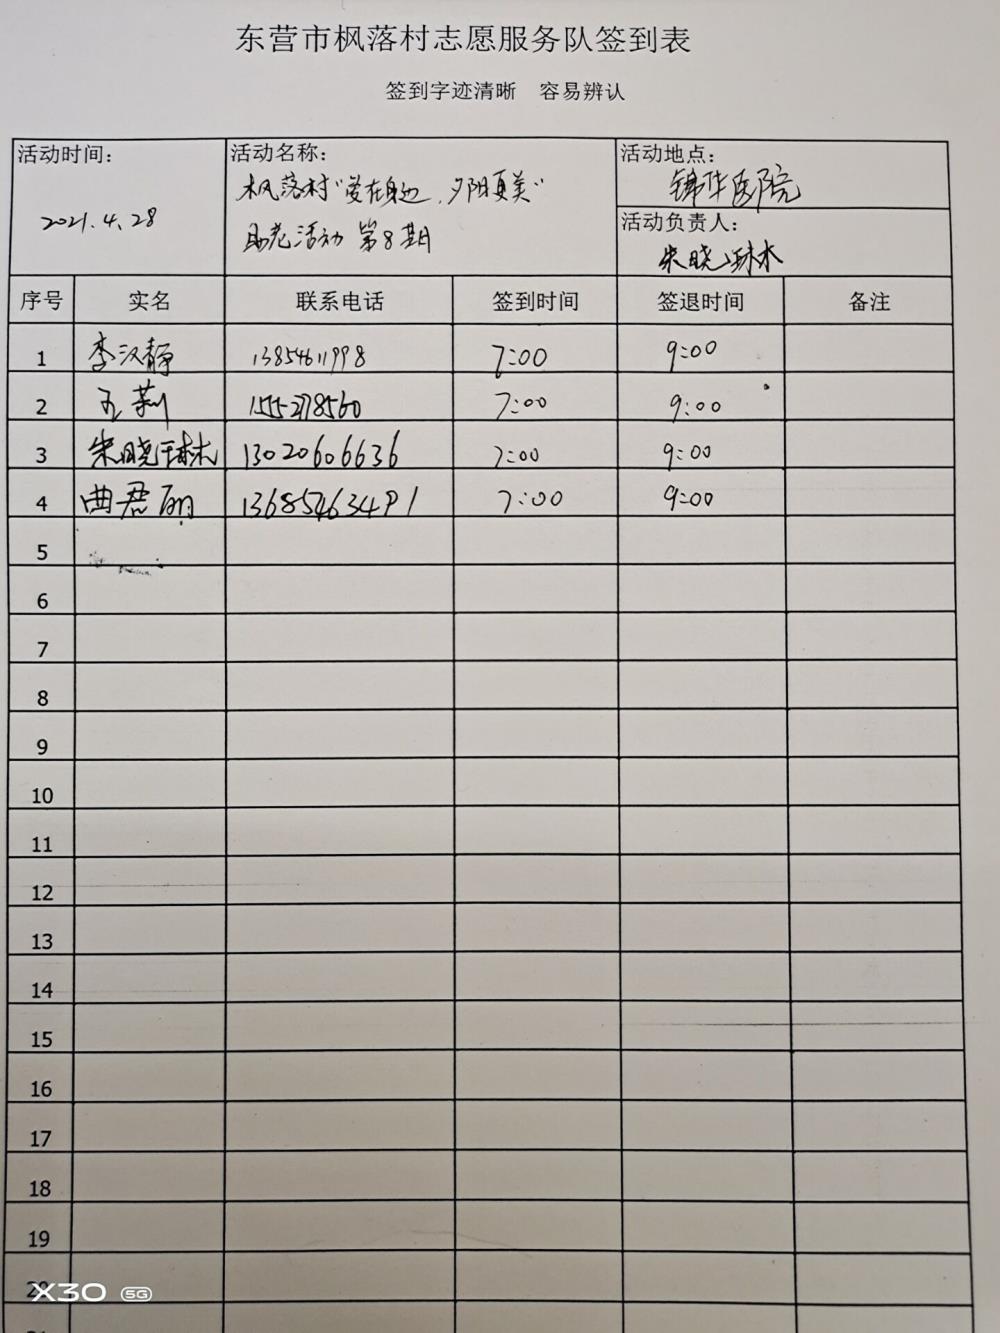 东营市枫落村志愿服务队签到表
签到字迹清晰 容易辨认
活动时间： 活动名称： 活动地点：
2021.4.28 枫落村“爱在身边，夕阳更美” 锦华医院
助老活动 第8期 活动负责人：
朱晓琳
序号 实名 联系电话 签到时间 签退时间 备注
1 李汉静 13854611998 7:00 9:00
2 王莉 7:00 9:00
3 朱晓琳 13020606636 7:00 9:00
4 曲君丽 13685463491 7:00 9:00
5
6
7
8
9
10
11
12
13
14
15
16
17
18
19
20
X30 5G
21